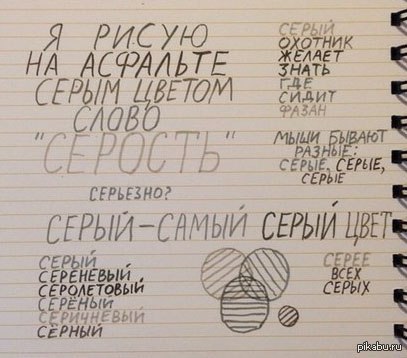 Я РИСУЮ
НА АСФАЛЬТЕ
СЕРЫМ ЦВЕТОМ
СЛОВО
"СЕРОСТЬ"
СЕРЬЕЗНО?
СЕРЫЙ
ОХОТНИК
ЖЕЛАЕТ
ЗНАТЬ
ГДЕ
СИДИТ
ФАЗАН
МЫШИ БЫВАЮТ
РАЗНЫЕ:
СЕРЫЕ, СЕРЫЕ,
СЕРЫЕ
СЕРЫЙ-САМЫЙ СЕРЫЙ ЦВЕТ
СЕРЫЙ
СЕРЕНЕВЫЙ
СЕРОЛЕТОВЫЙ
СЕРЁНЫЙ
СЕРИЧНЕВЫЙ
СЁРНЫЙ
СЕРЕЕ
ВСЕХ
СЕРЫХ
pikabu.ru